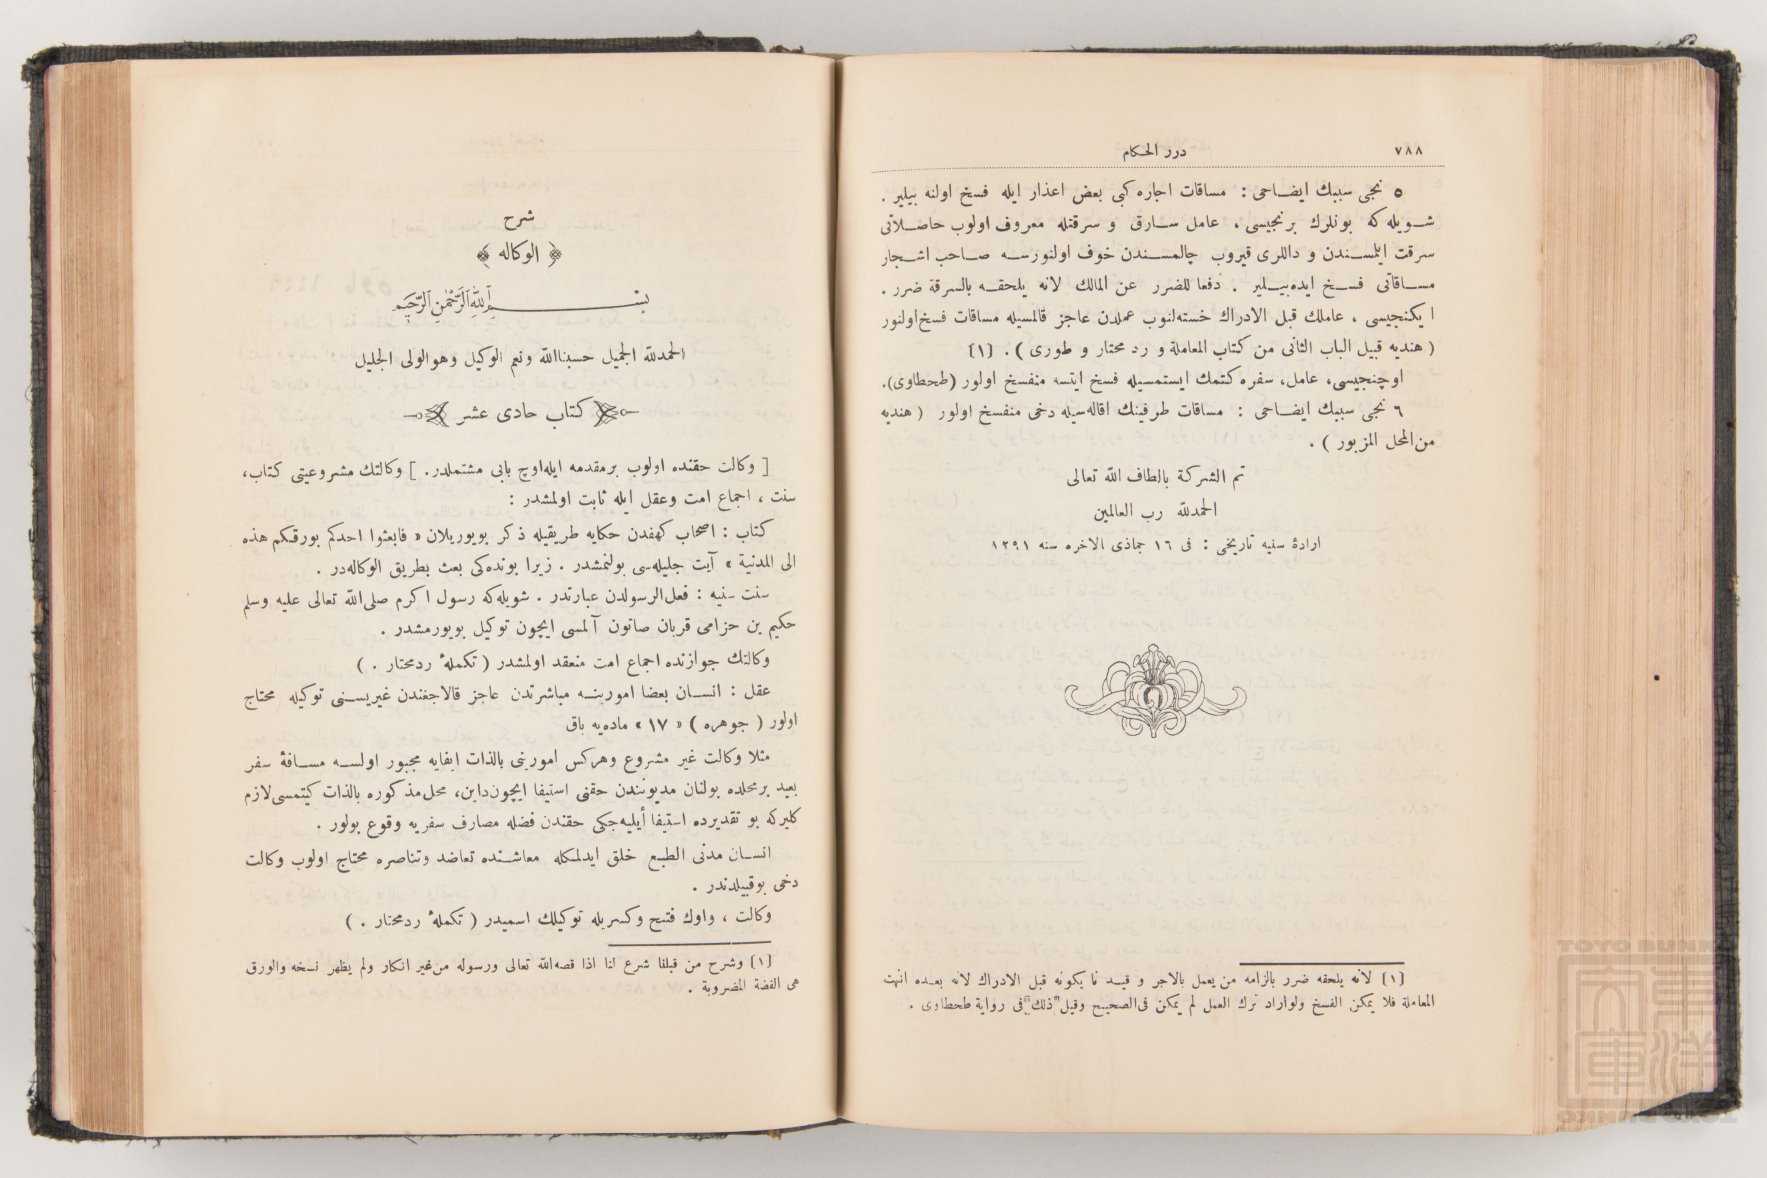 ٧٨٨
درر الحكام
٥ نجى سببك ايضاحى : مساقات اجاره كبى بعض اعذار ايله فسخ اولنه بيلير .
شويله كه بونلرك برنجيسى، عامل سارق و سرقتله معروف اولوب حاصلاتى
سرقت ايلمسندن و داللرى قيروب چالمسندن خوف اولنورسه صاحب اشجار
مساقاتى فسخ ايده بيلير . دفعا للضرر عن المالك لانه يلحقه بالسرقة ضرر .
ايكنجيسى ، عاملك قبل الادراك خسته لنوب عملدن عاجز قالمسيله مساقات فسخ اولنور
( هنديه قبيل الباب الثانى من كتاب المعاملة و رد محتار و طورى ) . [١]
اوچنجيسى، عامل، سفره كتمك ايستمسيله فسخ ايتسه منفسخ اولور (طحطاوى).
٦ نجى سببك ايضاحى : مساقات طرفينك اقاله سيله دخى منفسخ اولور ( هنديه
من المحل المزبور ) .
تم الشركة بالطاف الله تعالى
الحمدلله رب العالمين
ارادۀ سنيه تاريخى : فى ١٦ جماذى الاخره سنه ١٢٩١
[١] لانه يلحقه ضرر بالزامه من يعمل بالاجر و قيد نا بكونه قبل الادراك لانه بعده انتهت
المعاملة فلا يمكن الفسخ ولواراد ترك العمل لم يمكن فى الصحيح وقيل ذلك فى رواية طحطاوى .
شرح
﴿ الوكاله ﴾
بسم الله الرحمن الرحيم
الحمدلله الجميل حسبنا الله ونعم الوكيل وهو الولى الجليل
كتاب حادى عشر
[ وكالت حقنده اولوب برمقدمه ايله اوچ بابى مشتملدر. ] وكالتك مشروعيتى كتاب،
سنت ، اجماع امت وعقل ايله ثابت اولمشدر :
كتاب : اصحاب كهفدن حكايه طريقيله ذكر بويوريلان « فابعثوا احدكم بورقكم هذه
الى المدنية » آيت جليله سى بولنمشدر . زيرا بونده كى بعث بطريق الوكاله در .
سنت سنيه : فعل الرسولدن عبارتدر . شويله كه رسول اكرم صلى الله تعالى عليه وسلم
حكيم بن حزامى قربان صاتون آلمسى ايچون توكيل بويورمشدر .
وكالتك جوازنده اجماع امت منعقد اولمشدر ( تكملهٔ ردمحتار . )
عقل : انسان بعضا امورينه مباشرتدن عاجز قالاجغندن غيريسنى توكيله محتاج
اولور ( جوهره ) « ١٧ » ماده يه باق
مثلا وكالت غير مشروع وهركس امورينى بالذات ايفايه مجبور اولسه مسافهٔ سفر
بعيد برمحلده بولنان مديوتندن حقنى استيفا ايچون داين، محل مذكوره بالذات كيتمسى لازم
كليركه بو تقديرده استيفا أيليه جكى حقندن فضله مصارف سفريه وقوع بولور .
انسان مدنى الطبع خلق ايدلمكله معاشنده تعاضد وتناصره محتاج اولوب وكالت
دخى بوقبيلدندر .
وكالت ، واوك فتح وكسريله توكيلك اسميدر ( تكملهٔ ردمحتار . )
[١] وشرح من قبلنا شرع لنا اذا قصه الله تعالى ورسوله من غير انكار ولم يظهر نسخه والورق
هى الفضة المضروبة .
TOYO BUNKO